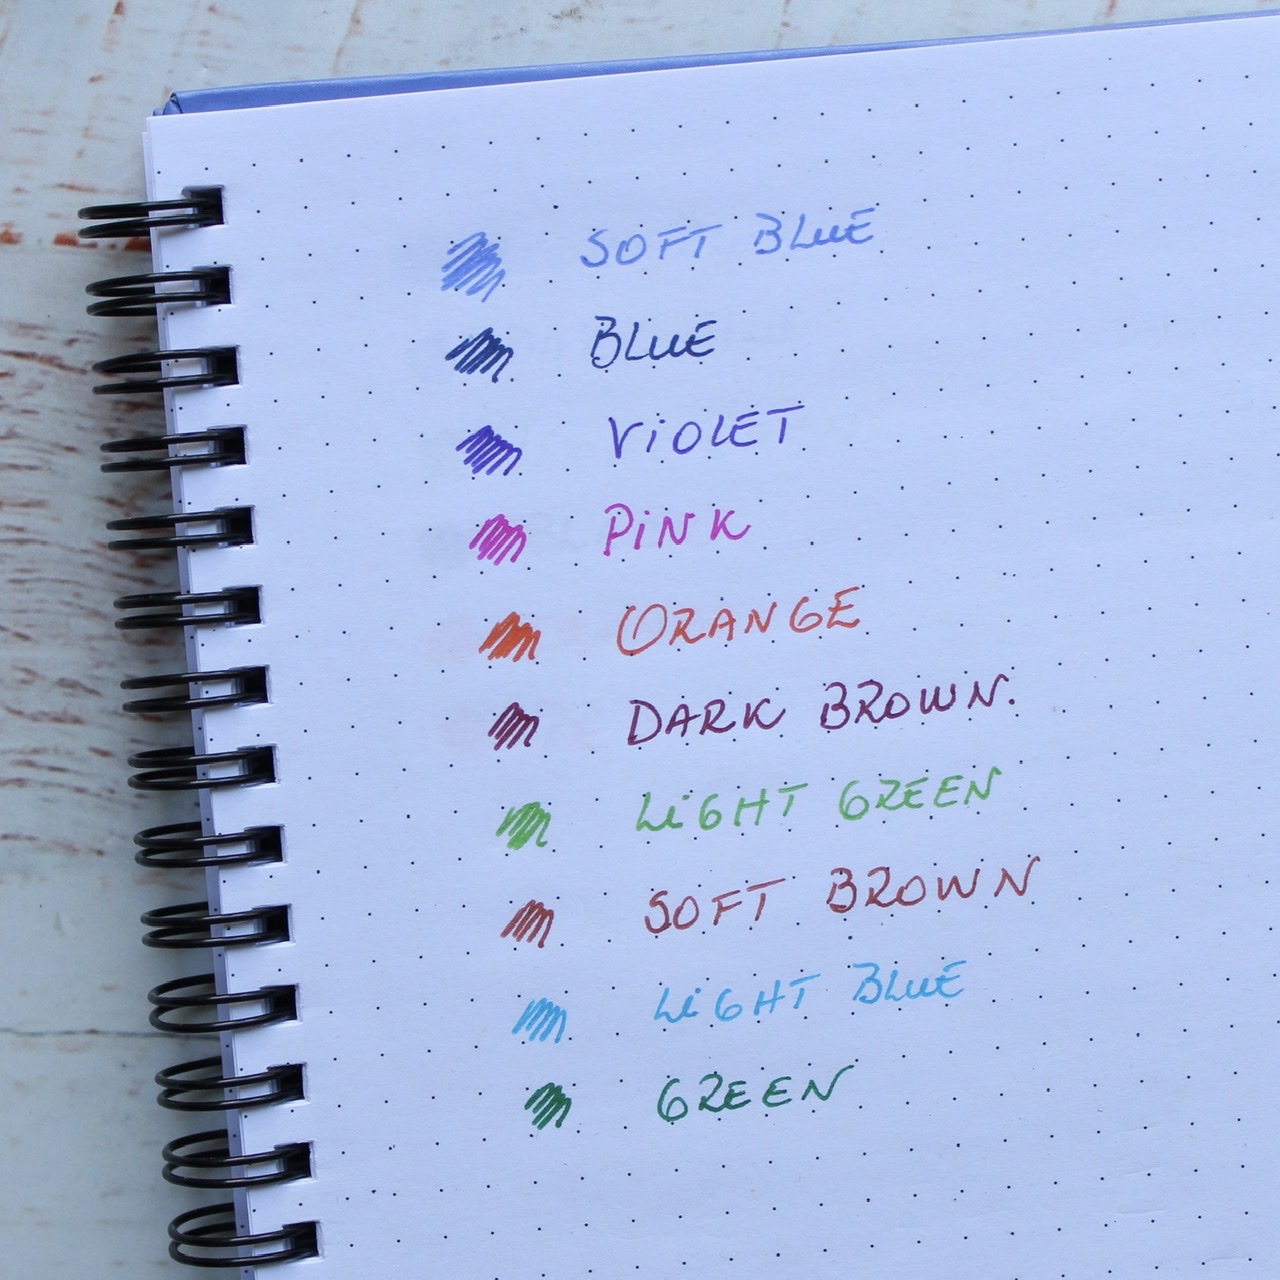 SOFT BLUE
BLUE
ViOLET
PiNK
ORANGE
DARK BROWN.
LiGHT GREEN
SOFT BROWN
LiGHT BLUE
GREEN